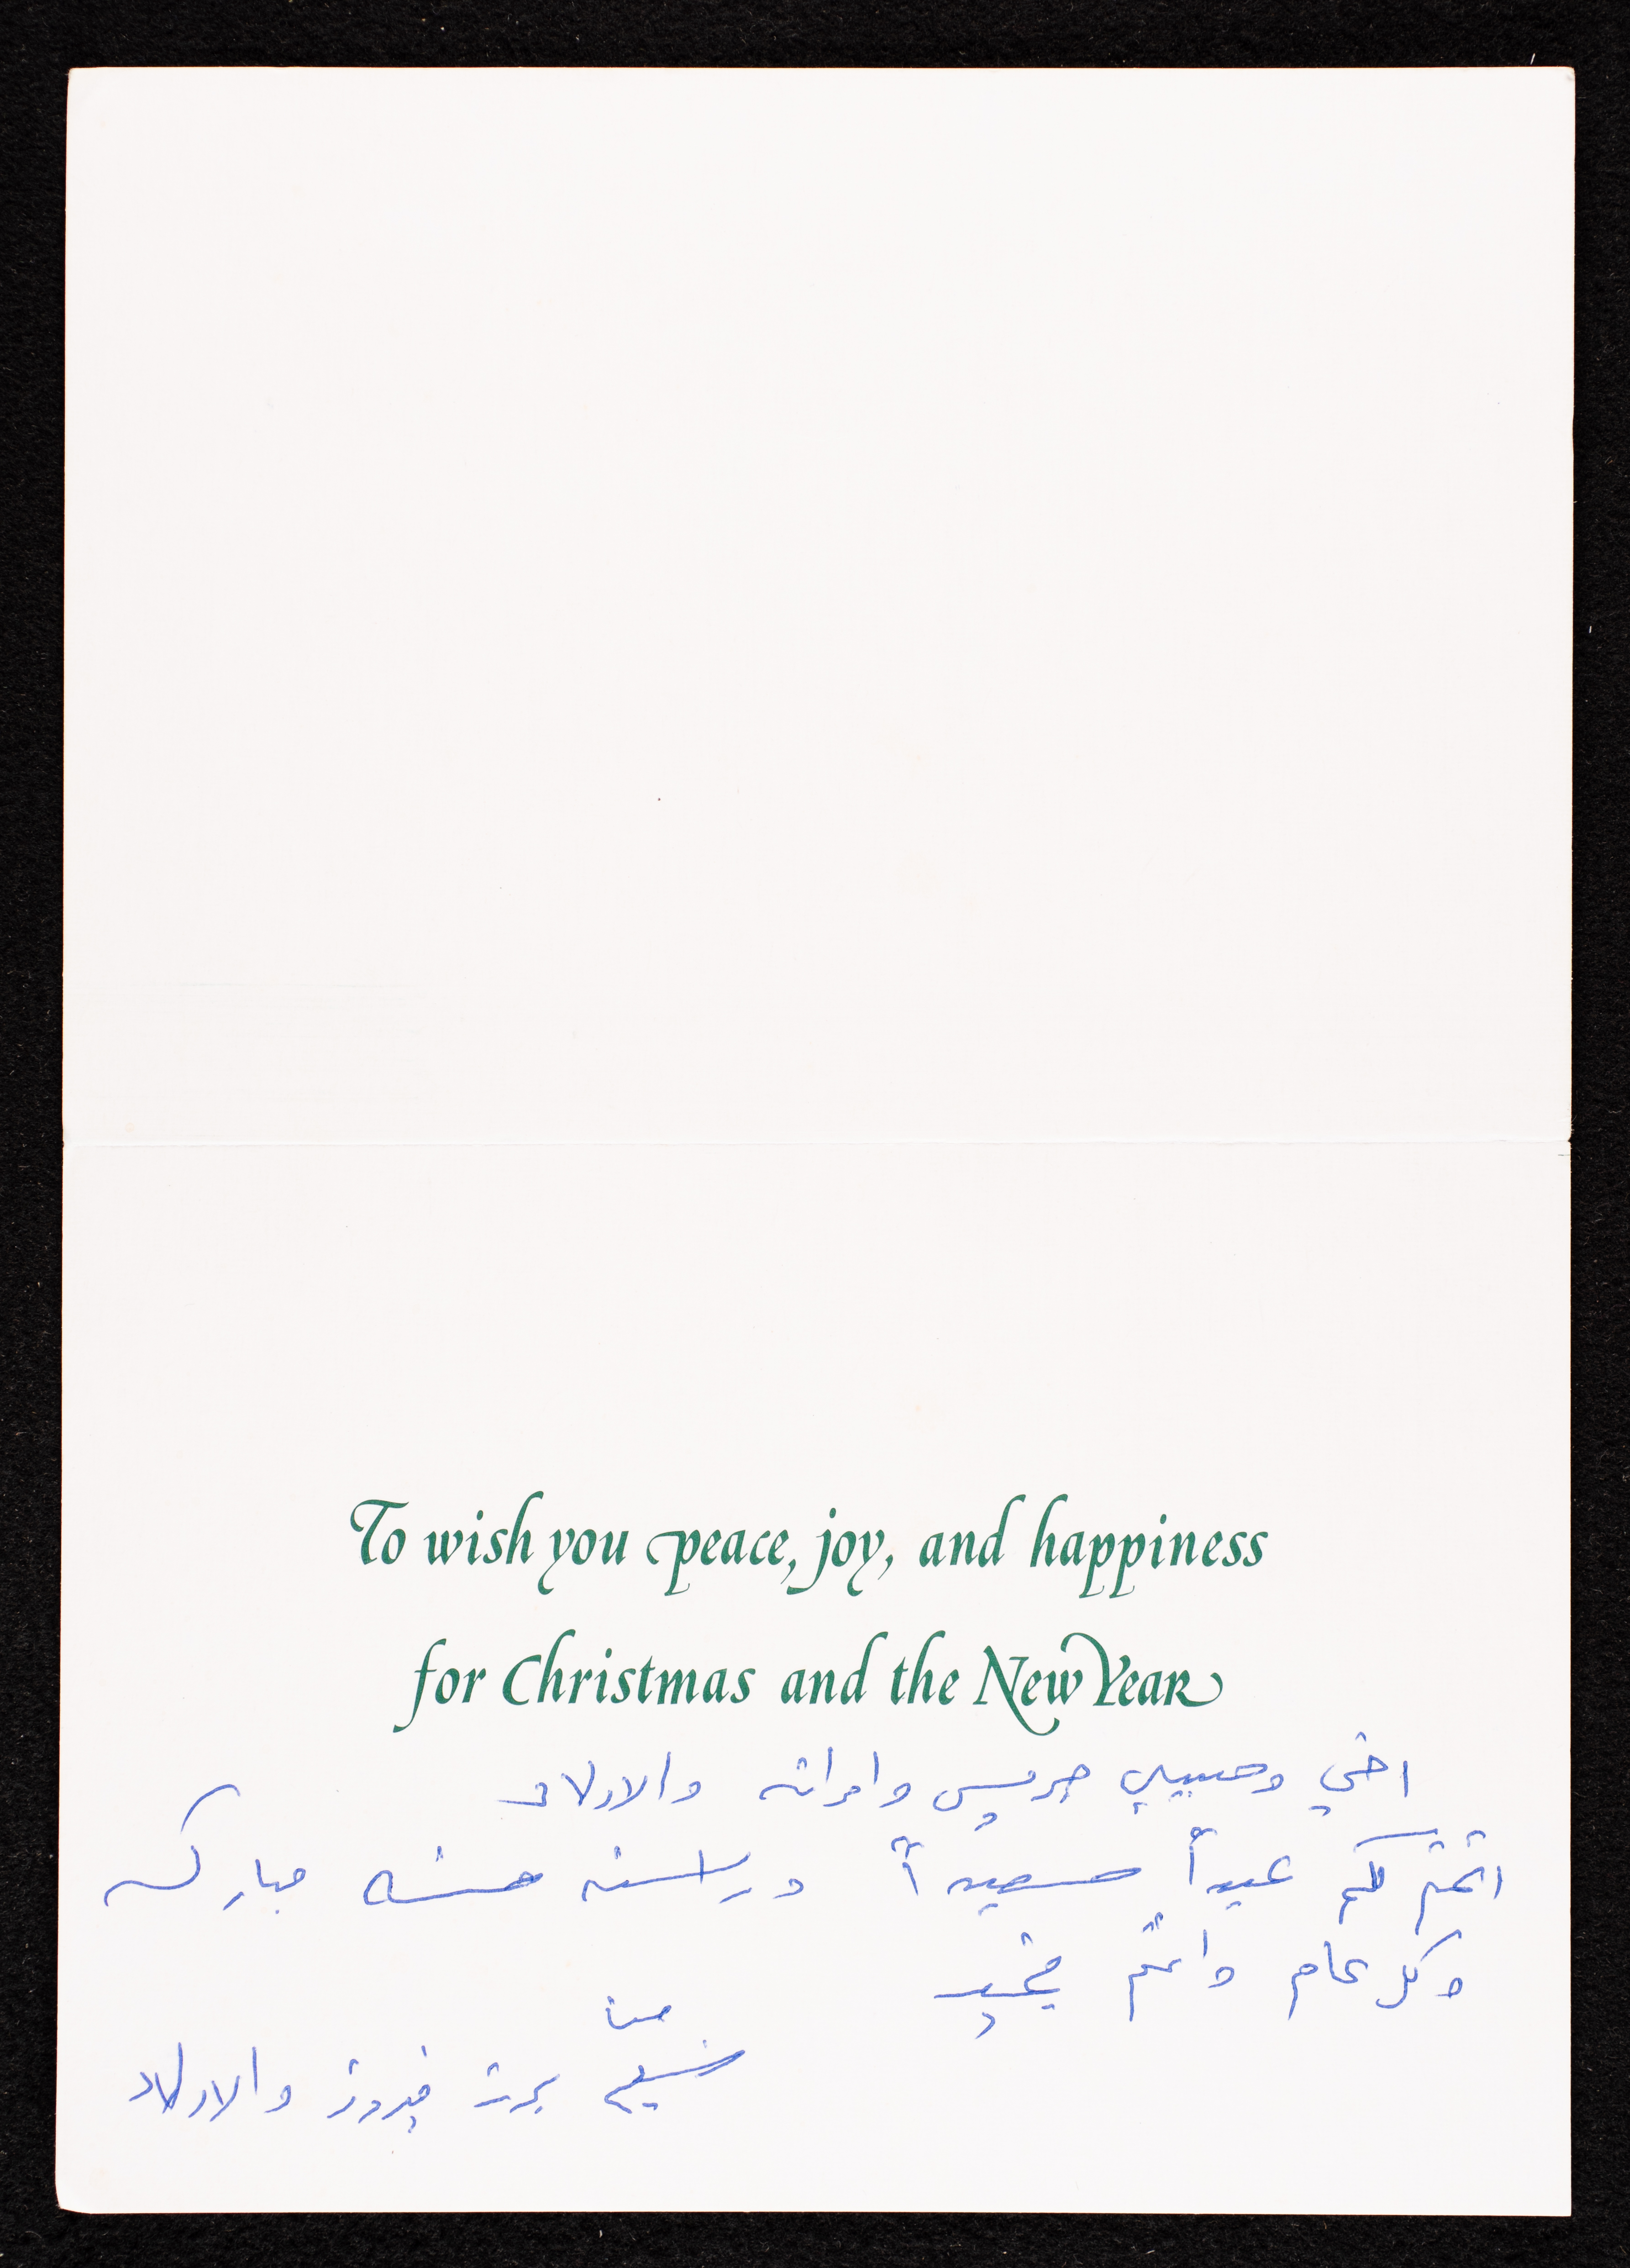 To wish you peace, joy, and happiness
for Christmas and the New Year
اخي وحبيبي جريس وامراته والاولاد
اتمنى لكم عيداً سعيداً وراسنه حسنه مباركه
وكل عام وانتم بخير
منا
نسيم فيروز والاولاد